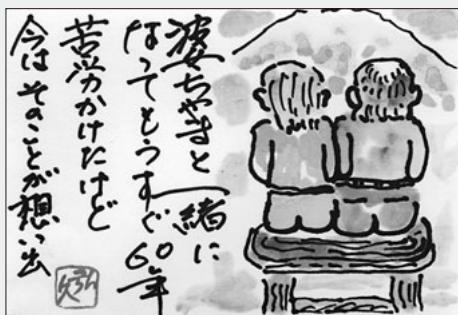 婆ちゃまと一緒に
なってもうすぐ60年
苦労かけたけど
今はそのことが想い出